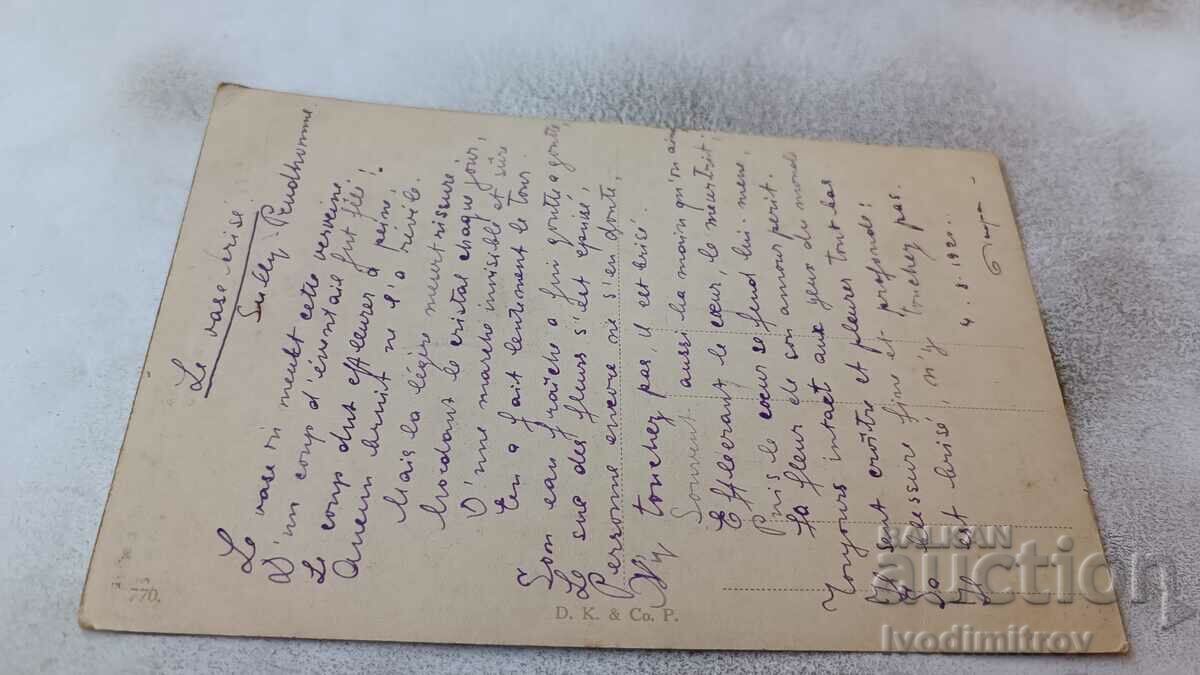 Le vase brisé
Sully Prudhomme
Le vase où meurt cette verveine
D'un coup d'éventail fut fêlé!
Le coup dut effleurer à peine,
Aucun bruit ne l'a révélé.
Mais la légère meurtrissure
Mordant le cristal chaque jour,
D'une marche invisible et sûre
En a fait lentement le tour.
Son eau fraîche a fui goutte a goutte,
Le suc des fleurs s'est épuisé,
Personne encore ne s'en doute,
N'y touchez pas, il est brisé.
Souvent aussi la main qu'on aime
Effleurant le cœur, le meurtrit,
Puis le cœur se fend lui-même,
La fleur de son amour périt.
Toujours intact aux yeux du monde
Il sent croître et pleurer tout bas
Sa blessure fine et profonde:
Il est brisé, n'y touchez pas.
4.8.1920.
770.
D. K. & Co. P.
BALKAN
auction
Ivodimitrov